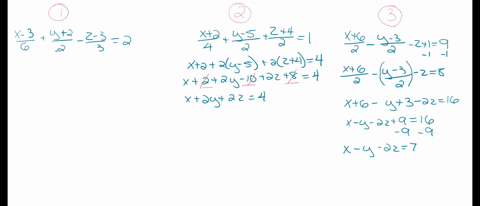 1
(x-3)/6 + (y+2)/2 - (z-3)/3 = 2
2
(x+2)/4 + (y-5)/2 + (z+4)/2 = 1
x+2+2(y-5)+2(z+4)=4
x+2+2y-10+2z+8=4
x+2y+2z=4
3
(x+6)/2 - (y-3)/2 - z+1=9
-1 -1
(x+6)/2 - ((y-3)/2) - z=8
x+6-y+3-2z=16
x-y-2z+9=16
-9 -9
x-y-2z=7